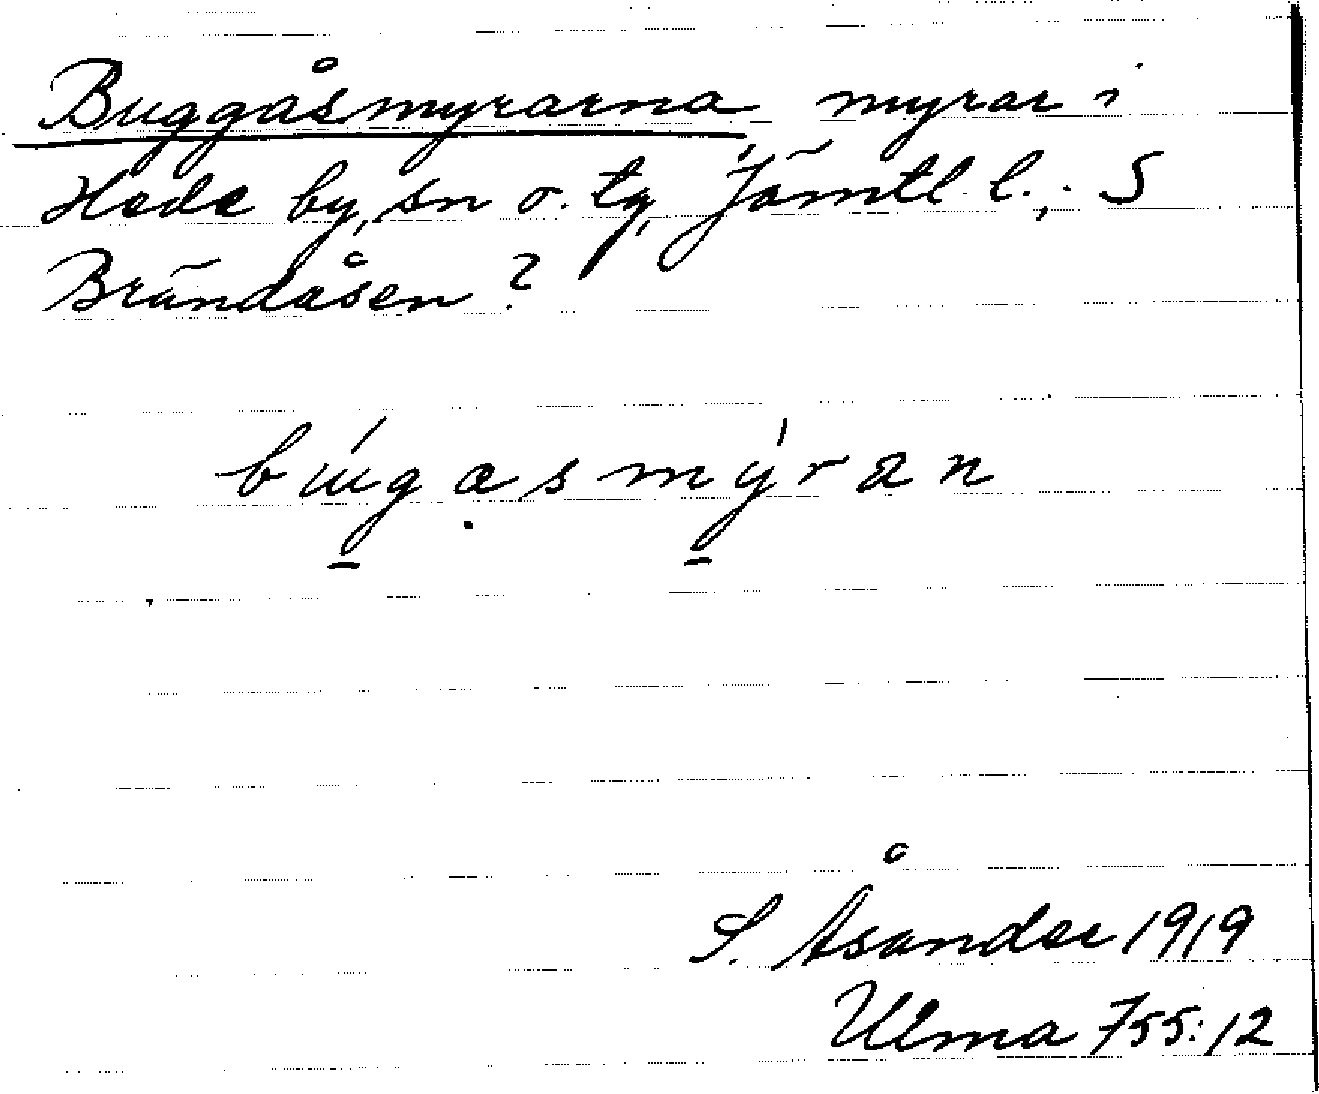 Buggåsmyrarna, myrar i
Hede by, sn o. tg, Jämtl. l.; S
Brändåsen?
búgasmýran
S. Åsander 1919
Ulma 755:12